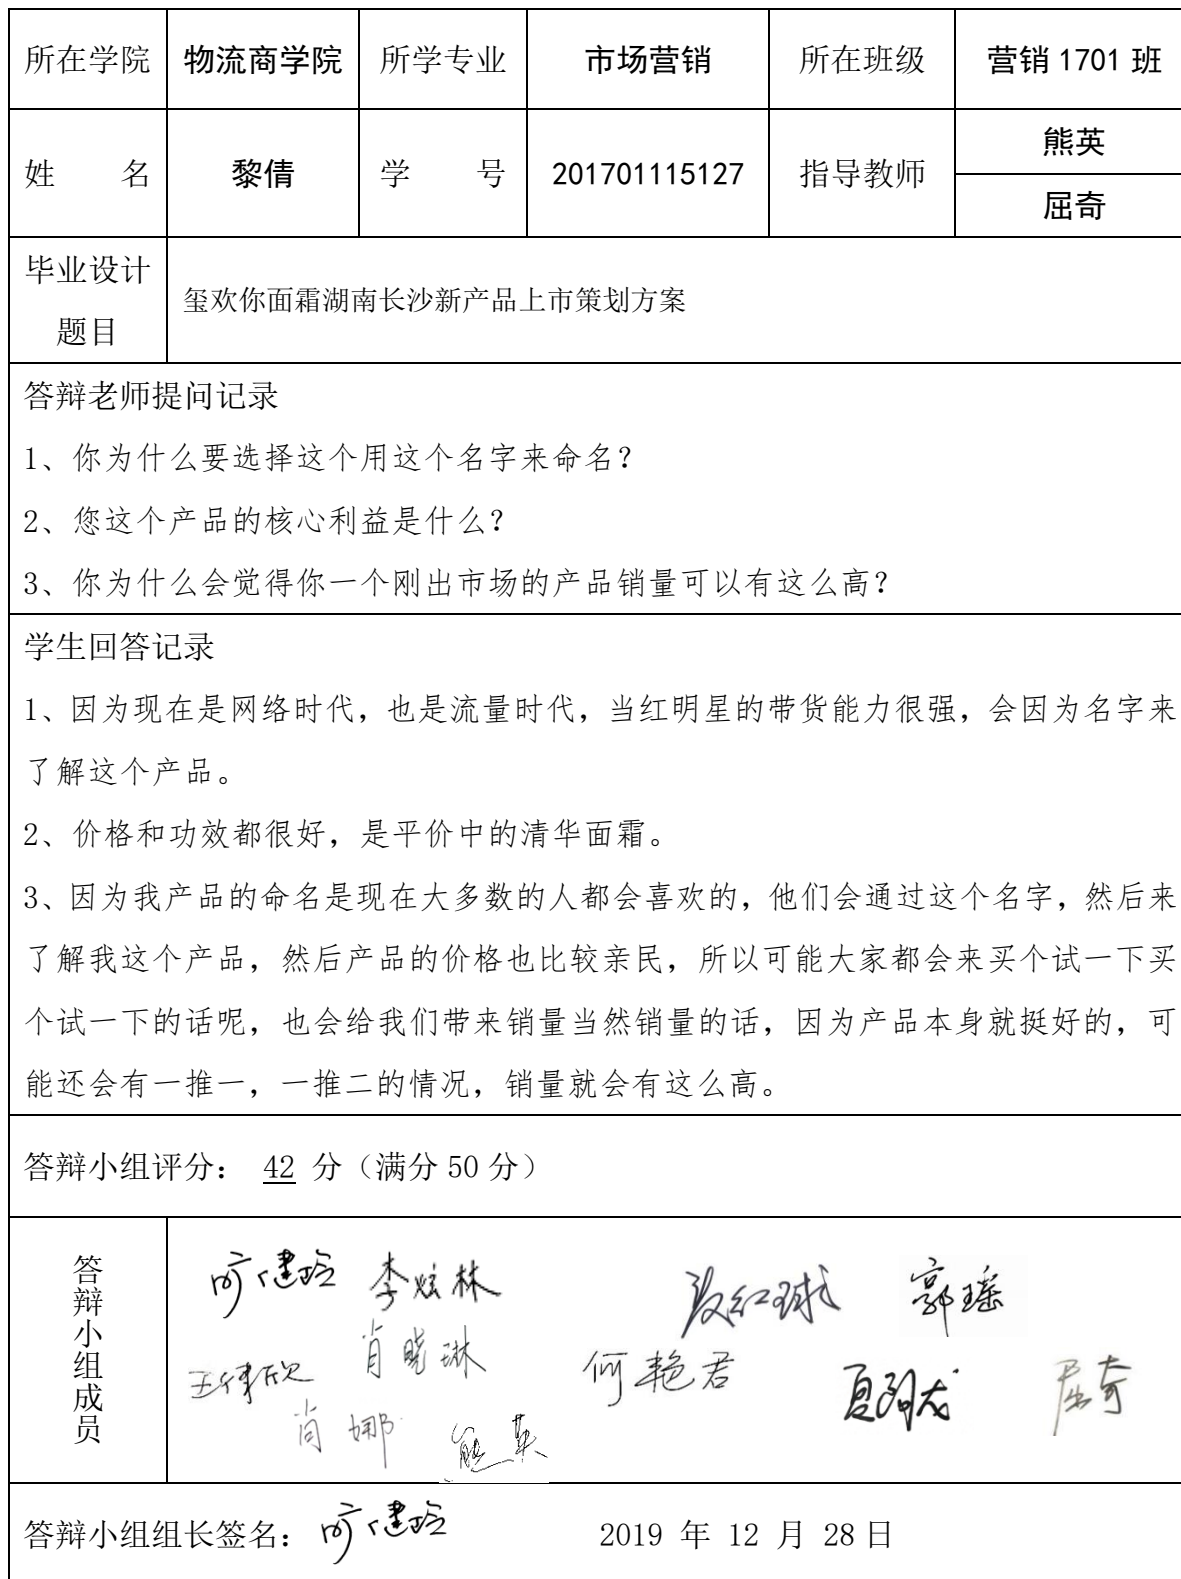 所在学院 物流商学院 所学专业 市场营销 所在班级 营销 1701 班
姓 名 黎倩 学 号 201701115127 指导教师 熊英
屈奇
毕业设计
题目
玺欢你面霜湖南长沙新产品上市策划方案
答辩老师提问记录
1、你为什么要选择这个用这个名字来命名？
2、您这个产品的核心利益是什么？
3、你为什么会觉得你一个刚出市场的产品销量可以有这么高？
学生回答记录
1、因为现在是网络时代，也是流量时代，当红明星的带货能力很强，会因为名字来
了解这个产品。
2、价格和功效都很好，是平价中的清华面霜。
3、因为我产品的命名是现在大多数的人都会喜欢的，他们会通过这个名字，然后来
了解我这个产品，然后产品的价格也比较亲民，所以可能大家都会来买个试一下买
个试一下的话呢，也会给我们带来销量当然销量的话，因为产品本身就挺好的，可
能还会有一推一，一推二的情况，销量就会有这么高。
答辩小组评分： 42 分（满分 50 分）
答辩小组成员
李炫林
郭瑶
肖晓琳
何艳君
屈奇
肖娜
熊英
答辩小组组长签名：
2019 年 12 月 28 日